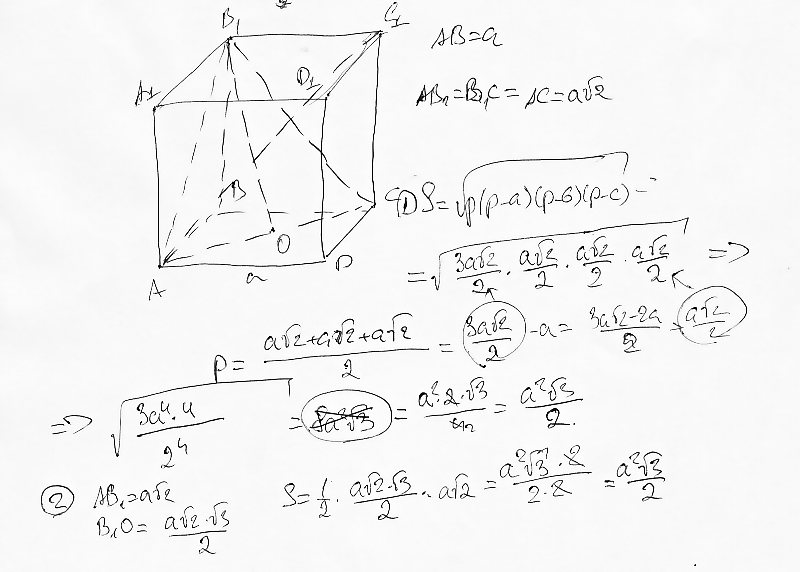 B₁ C₁
A₁ D₁
B C
O
A a D
AB=a
AB₁=B₁C=AC=a√2
① S=√p(p-a)(p-b)(p-c) =
=√3a√2/2 · a√2/2 · a√2/2 · a√2/2 =>
p= a√2+a√2+a√2/2 = 3a√2/2 -a= 3a√2-2a/2 = a√2/2
=> √3a⁴·4/2⁴ = = a²·2·√3/4 = a²√3/2.
② AB₁=a√2
B₁O= a√2·√3/2
S=1/2 · a√2·√3/2 · a√2 = a²√3·2/2·2 = a²√3/2